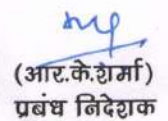 (आर.के.शर्मा)
प्रबंध निदेशक